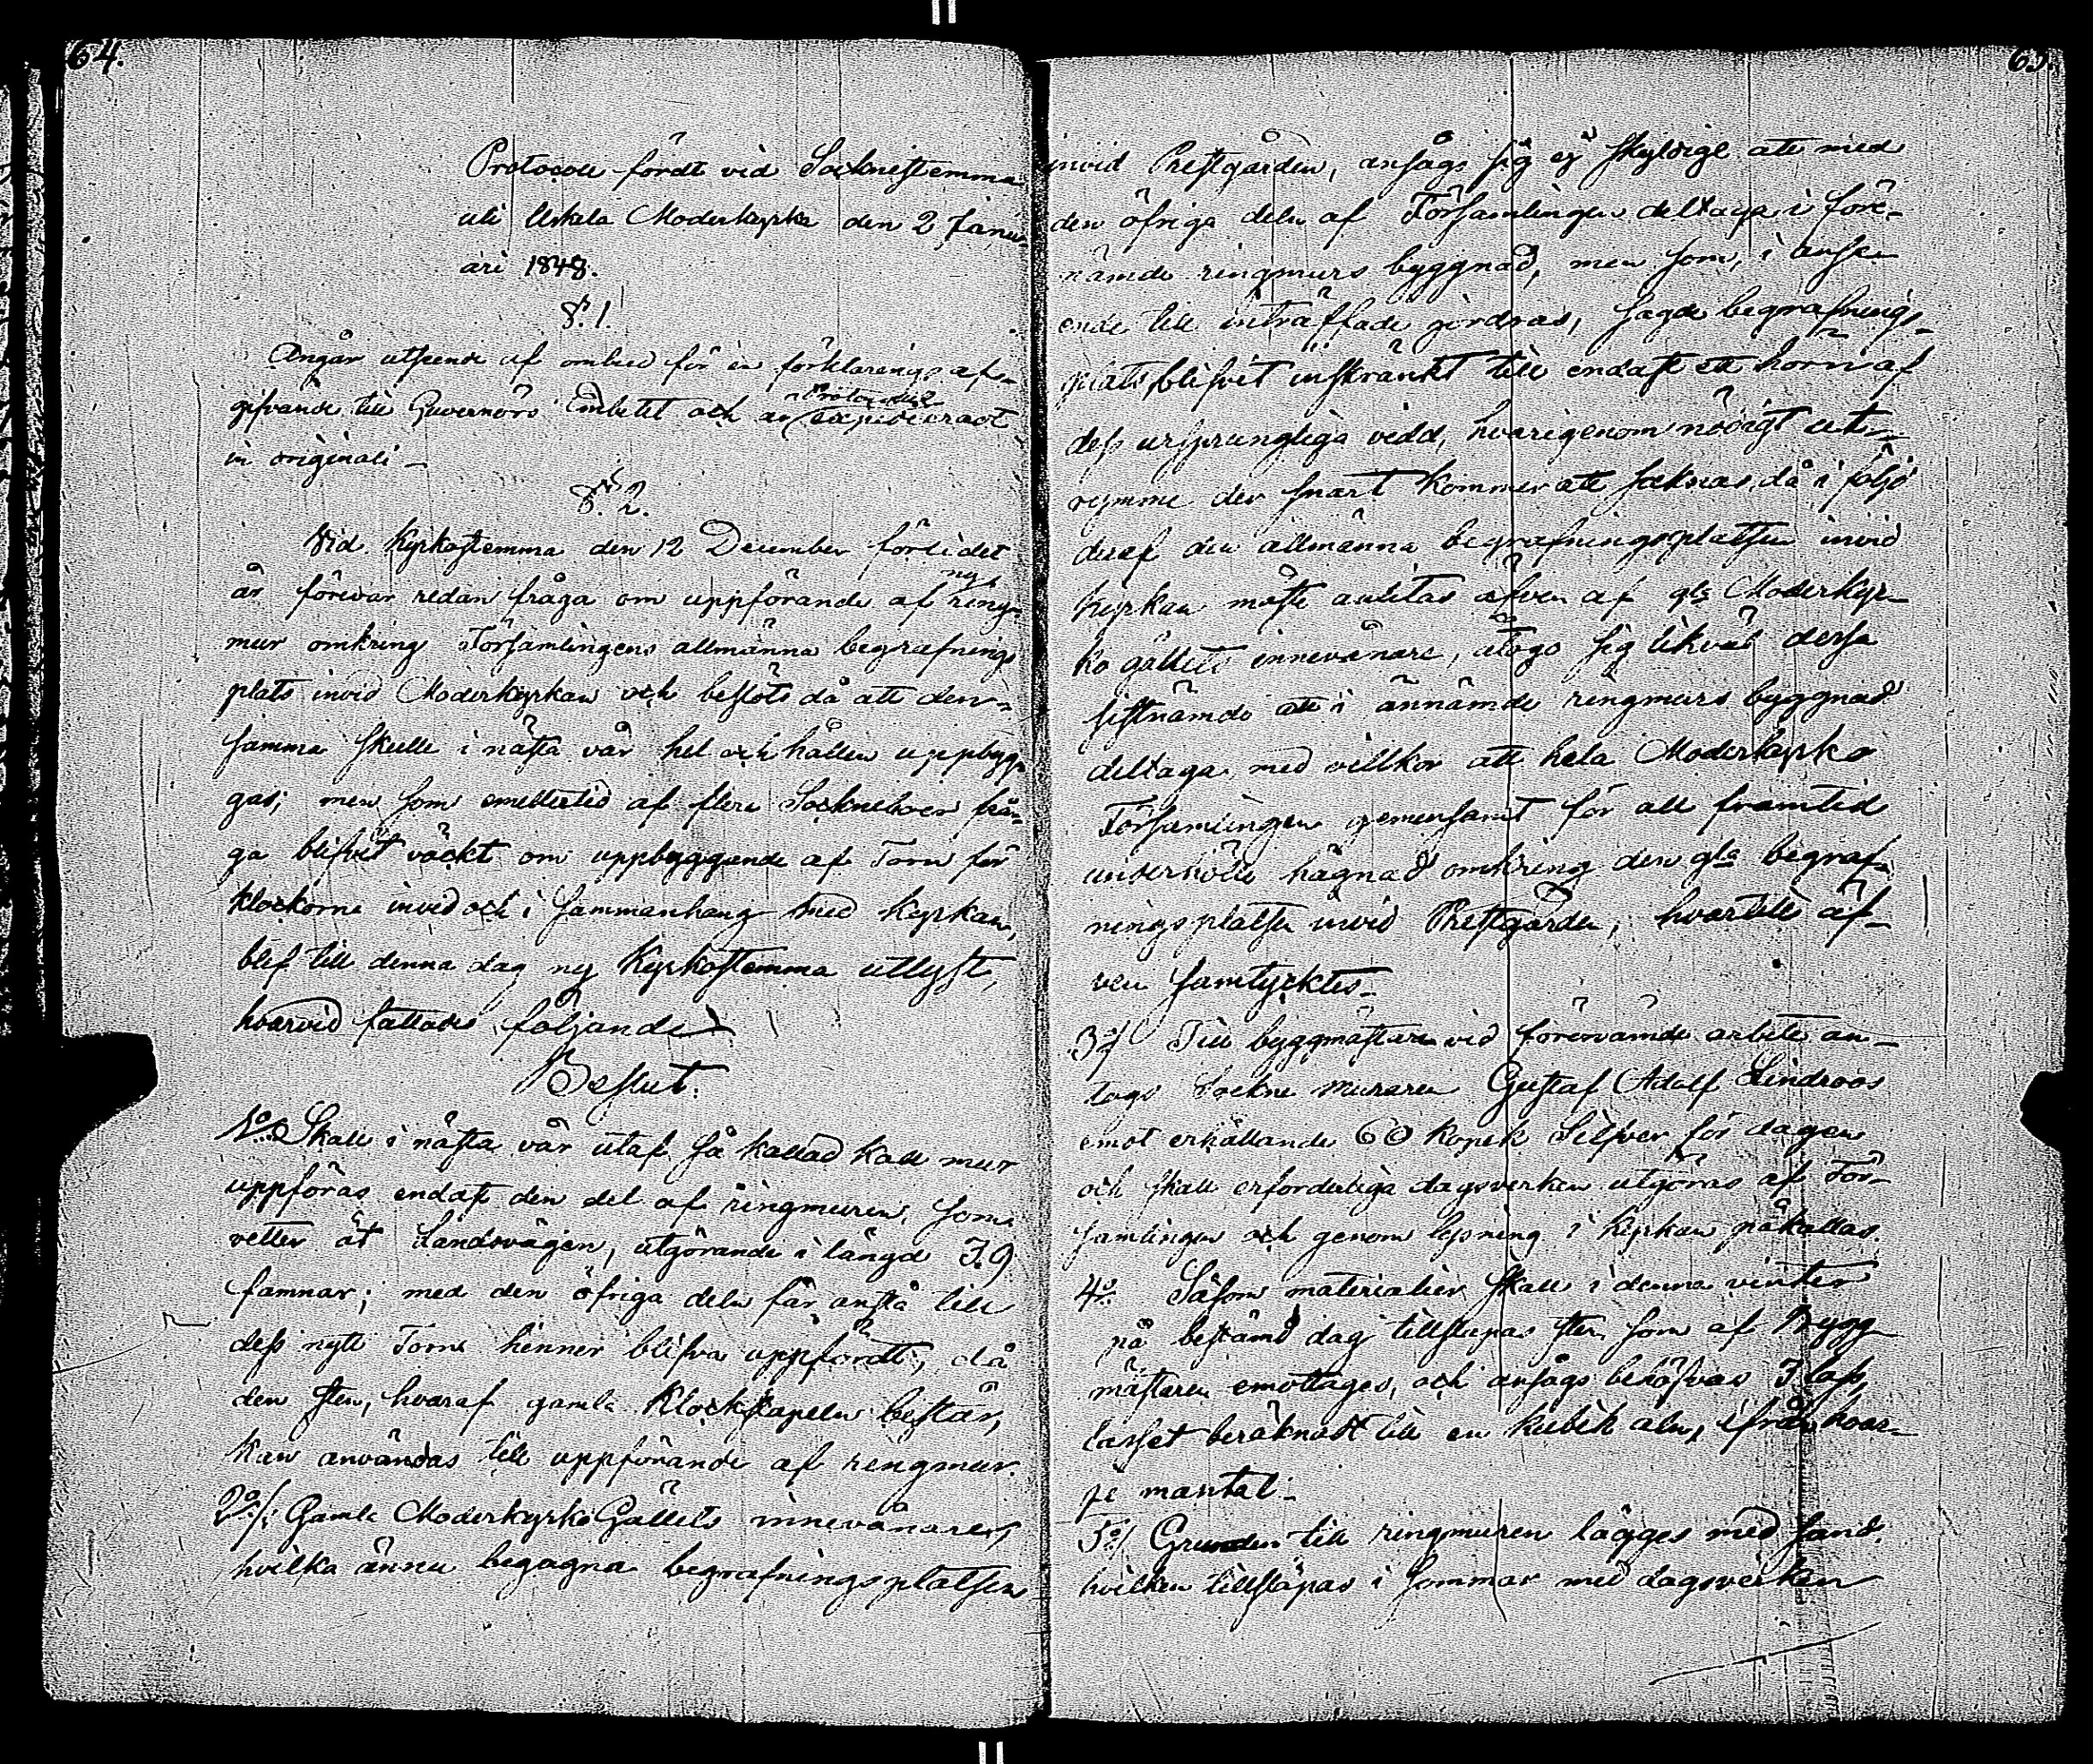 64.
Protocoll fördt vid Socknestemma
uti Uskela Moderkyrka den 2 Janu-
ari 1848.
§. 1.
Angår utseende af ombud för en förklarings af-
gifvande till Guvernörs Embetet och är Protocollet expedieradt
in originali –
§. 2.
Vid Kyrkostemma den 12 December förlidet
år förevar redan fråga om uppförande af ny ring-
mur omkring Församlingens allmänna begrafnings
plats invid Moderkyrkan och beslöts då att den-
samma skulle i nästa vår hel och hållen uppbyg-
gas; men som emellertid af flere Sockneboer frå-
ga blifvit väckt om uppbyggande af Torn för
klockorne invid och i sammanhang med kyrkan,
blef till denna dag ny Kyrkostemma utlyst,
hvarvid fattades följande
Beslut.
1:o Skall i nästa vår utaf så kallad kall mur
uppföras endast den del af ringmuren, som
vetter åt Landsvägen, utgörande i längd 39
famnar; med den öfriga delen får anstå till
dess nytt Torn hinner blifva uppfördt, då
den sten, hvaraf gamla Klockstapeln består,
kan användas till uppförande af ringmur.
2:o/: Gamla Moderkyrko Gällets innevånare,
hvilka ännu begagna begrafningsplatsen
65.
invid Prestgården, ansågs sig ej skyldige att med
den öfriga delen af Församlingen deltaga i före-
nämde ringmurs byggnad, men som, i anse-
ende till inträffade jordras, sagde begrafnings-
plats blifvit inskränkt till endast ett hörn af
dess ursprungliga vidd, hvarigenom nödigt ut-
rymme der snart kommer att saknas, då i följd
deraf den allmänna begrafningsplatsen invid
kyrkan måste anlitas äfven af gla Moderkyr-
ko gällets innevånare, åtogo sig likväl dessa
sistnämde att i ännämde ringmurs byggnad
deltaga, med villkor att hela Moderkyrko
Församlingen gemensamt för all framtid
underhölle hägnad omkring den gla begraf-
ningsplatsen invid Prestgården, hvartill äf-
ven samtycktes –
3:o/ Till byggmästare vid förenämde arbete an-
togs Sockne muraren Gustaf Adolf Lindroos
emot erhållande 60 kopek Silfver för dagen
och skall erforderliga dagsverken utgöras af För-
samlingen och genom lysning i kyrkan påkallas.
4:o Såsom materialier skall i denna vinter
på bestämd dag tillsläpas sten som af Bygg-
mästaren emottages, och ansågs behöfvas 3 lass,
lasset beräknadt till en kubik aln, ifrån hvar-
je mantal –
5:o/ Grunden till ringmuren lägges med sand
hvilken tillsläpas i sommar med dagsverken